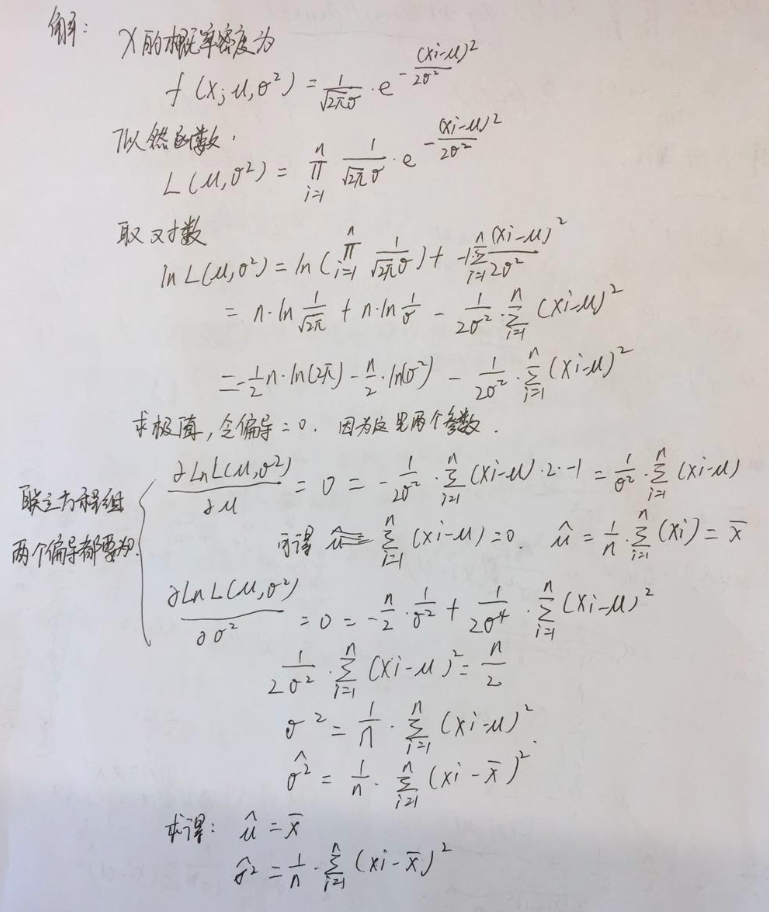 解: X的概率密度为
f(x; μ, σ²) = 1/(√2π σ) · e^(-(xi-μ)²/2σ²)
似然函数.
L(μ, σ²) = ∏_{i=1}^{n} 1/(√2π σ) · e^(-(xi-μ)²/2σ²)
取对数
ln L(μ, σ²) = ln(∏_{i=1}^{n} 1/(√2π σ)) + -1∑_{i=1}^{n} (xi-μ)²/2σ²
= n·ln 1/√2π + n·ln 1/σ - 1/2σ² · ∑_{i=1}^{n} (xi-μ)²
= -1/2 n·ln(2π) - n/2 · ln(σ²) - 1/2σ² · ∑_{i=1}^{n} (xi-μ)²
求极值, 令偏导=0. 因为这里两个参数.
联立方程组
两个偏导都要为0.
∂Ln L(μ, σ²)/∂μ = 0 = -1/2σ² · ∑_{i=1}^{n} (xi-μ)·2·-1 = 1/σ² · ∑_{i=1}^{n} (xi-μ)
可得 ∑_{i=1}^{n} (xi-μ)=0. μ̂ = 1/n · ∑_{i=1}^{n} (xi) = x̄
∂Ln L(μ, σ²)/∂σ² = 0 = -n/2 · 1/σ² + 1/2σ⁴ · ∑_{i=1}^{n} (xi-μ)²
1/2σ² · ∑_{i=1}^{n} (xi-μ)² = n/2
σ² = 1/n · ∑_{i=1}^{n} (xi-μ)²
σ̂² = 1/n · ∑_{i=1}^{n} (xi-x̄)²
求得: μ̂ = x̄
σ̂² = 1/n · ∑_{i=1}^{n} (xi-x̄)²